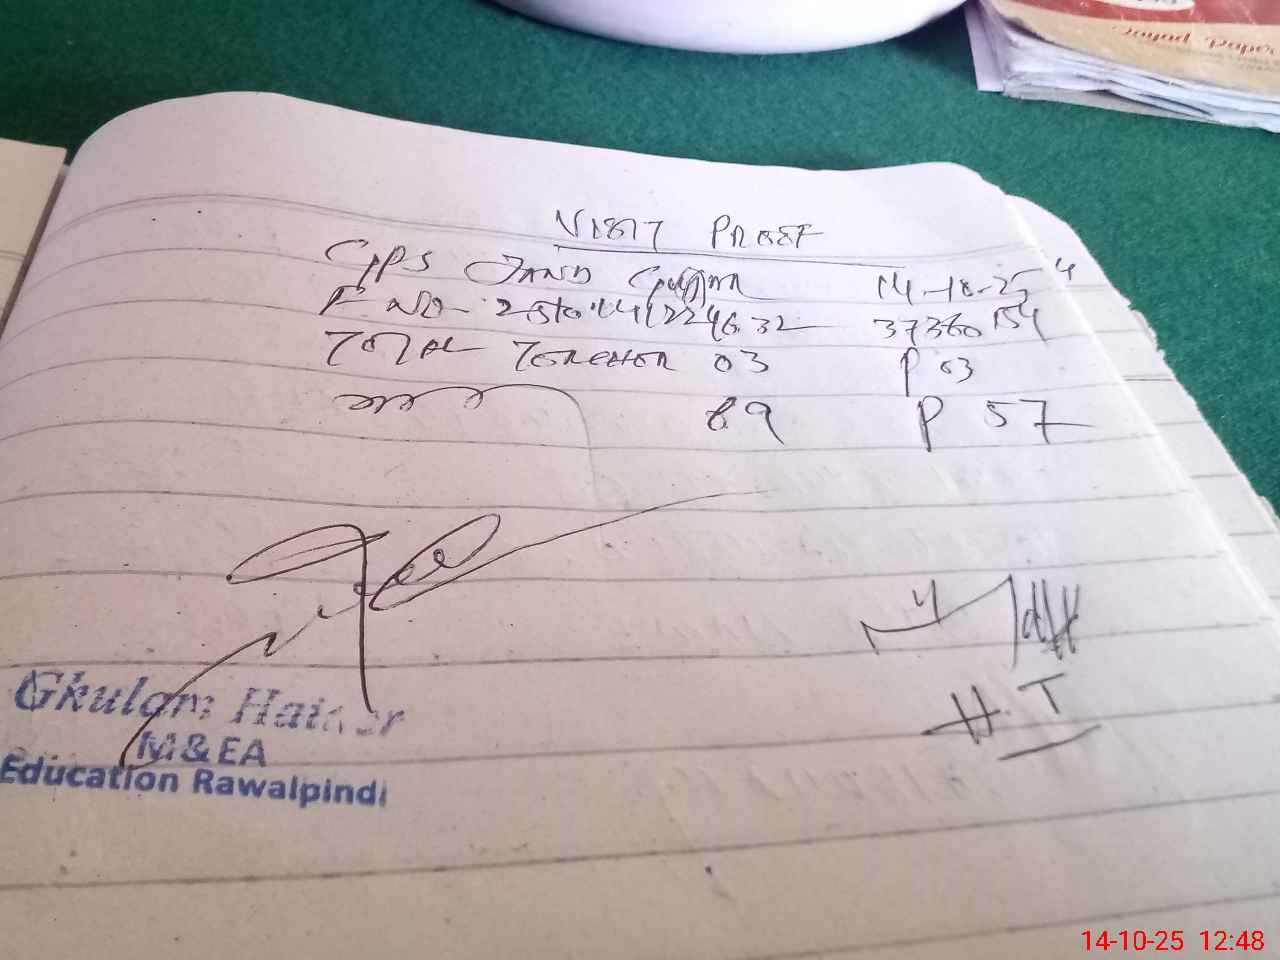 Jayad Paper
VISIT PROOF
GPS JAND Gujjar 14-10-25
F NO- 37360154
TOTAL TEACHER 03 P 03
89 P 57
H.T
Ghulam Haider
M&EA
Education Rawalpindi
14-10-25 12:48